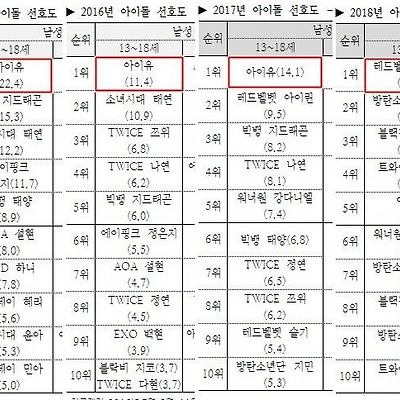 아이돌 선호도
▶ 2016년 아이돌 선호도 -
▶ 2017년 아이돌 선호도 -
▶ 2018년 아이돌
남성
순위
남성
순위
남성
순위
~18세
13~18세
13~18세
13
아이유
22.4)
1위
아이유
(11,4)
1위
아이유(14,1)
1위
레드벨
지드래곤
15.3)
2위
소녀시대 태연
(10,9)
2위
레드벨벳 아이린
(9,5)
2위
방탄소
대 태연
12.2)
3위
TWICE 쯔위
(6,8)
3위
빅뱅 지드래곤
(8,2)
3위
블랙
핑크
지(11,7)
4위
TWICE 나연
(6,2)
4위
TWICE 나연
(8,1)
4위
트와
태양
(8,9)
5위
빅뱅 지드래곤
(6,0)
5위
워너원 강다니엘
(7,4)
5위
A 설현
(8.0)
6위
에이핑크 정은지
(5,5)
6위
빅뱅 태양(6,8)
6위
워너원
D 하니
(7.8)
7위
AOA 설현
(4,7)
7위
TWICE 정연
(6,5)
7위
방탄소
혜리
(5.6)
8위
TWICE 정연
(4,5)
8위
TWICE 쯔위
(6,2)
8위
블랙
대 윤아
(5,3)
9위
EXO 백현
(3,9)
9위
레드벨벳 슬기
(5,4)
9위
방탄소
민아
(5,0)
10위
블락비 지코(3,7)
TWICE 다현(3,7)
10위
방탄소년단 지민
(5,3)
10위
트와